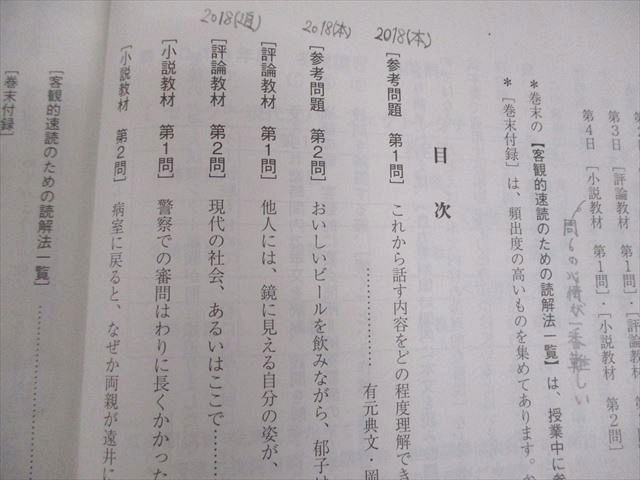 第3日 [評論教材 第1問]・[評論教材
第4日 [小説教材 第1問]・[小説教材 第2問]
問6の心情が一番難しい
* 巻末の【客観的速読のための読解法一覧】は、授業中に参
* [巻末付録]は、頻出度の高いものを集めてあります。
目次
2018(本)
[参考問題 第1問] これから話す内容をどの程度理解でき
………… 有元典文・岡
2018(本)
[参考問題 第2問] おいしいビールを飲みながら、郁子は
[評論教材 第1問] 他人には、鏡に見える自分の姿が、
2018(追)
[評論教材 第2問] 現代の社会、あるいはここで………
[小説教材 第1問] 警察での審問はわりに長くかかった
[小説教材 第2問] 病室に戻ると、なぜか両親が遠井に
[客観的速読のための読解法一覧] …………
[巻末付録]